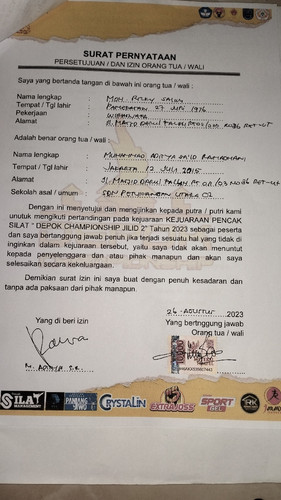 SURAT PERNYATAAN
PERSETUJUAN / DAN IZIN ORANG TUA / WALI
Saya yang bertanda tangan di bawah ini orang tua / wali :
Nama lengkap : MOH. RIZKY
Tempat / Tgl lahir : PAMEKASAN 27 JUNI 1976
Pekerjaan : WIRASWASTA
Alamat : Jl. MASJID DARUL FALAH
Adalah benar orang tua / wali :
Nama lengkap : MUHAMMAD ADITYA SA'ID RAMADHANI
Tempat / Tgl lahir : JAKARTA 12 JULI 2015
Alamat : Jl. MASJID DARUL FALAH RT 02/03 NO.86
Sekolah asal / umum : SDN PETUKANGAN UTARA 02
Dengan ini menyetujui dan mengijinkan kepada putra / putri kami
unutuk mengikuti pertandingan pada kejuaraan KEJUARAAN PENCAK
SILAT " DEPOK CHAMPIONSHIP JILID 2" Tahun 2023 sebagai peserta
dan saya bertanggung jawab penuh jika terjadi sesuatu hal yang tidak di
inginkan dalam kejuaraan tersebut, yaitu saya tidak akan menuntut
kepada penyelenggara dan atau pihak manapun dan akan saya
selesaikan secara kekeluargaan.
Demikian surat izin ini saya buat dengan penuh kesadaran dan
tanpa ada paksaan dari pihak manapun.
26 - AGUSTUS ,2023
Yang di beri izin
Yang bertinggung jawab
Orang tua / wali
M. ADITYA S.R
SILAT
MANAGEMENT
CRYSTALIN
EXTRAJOSS
SPORT